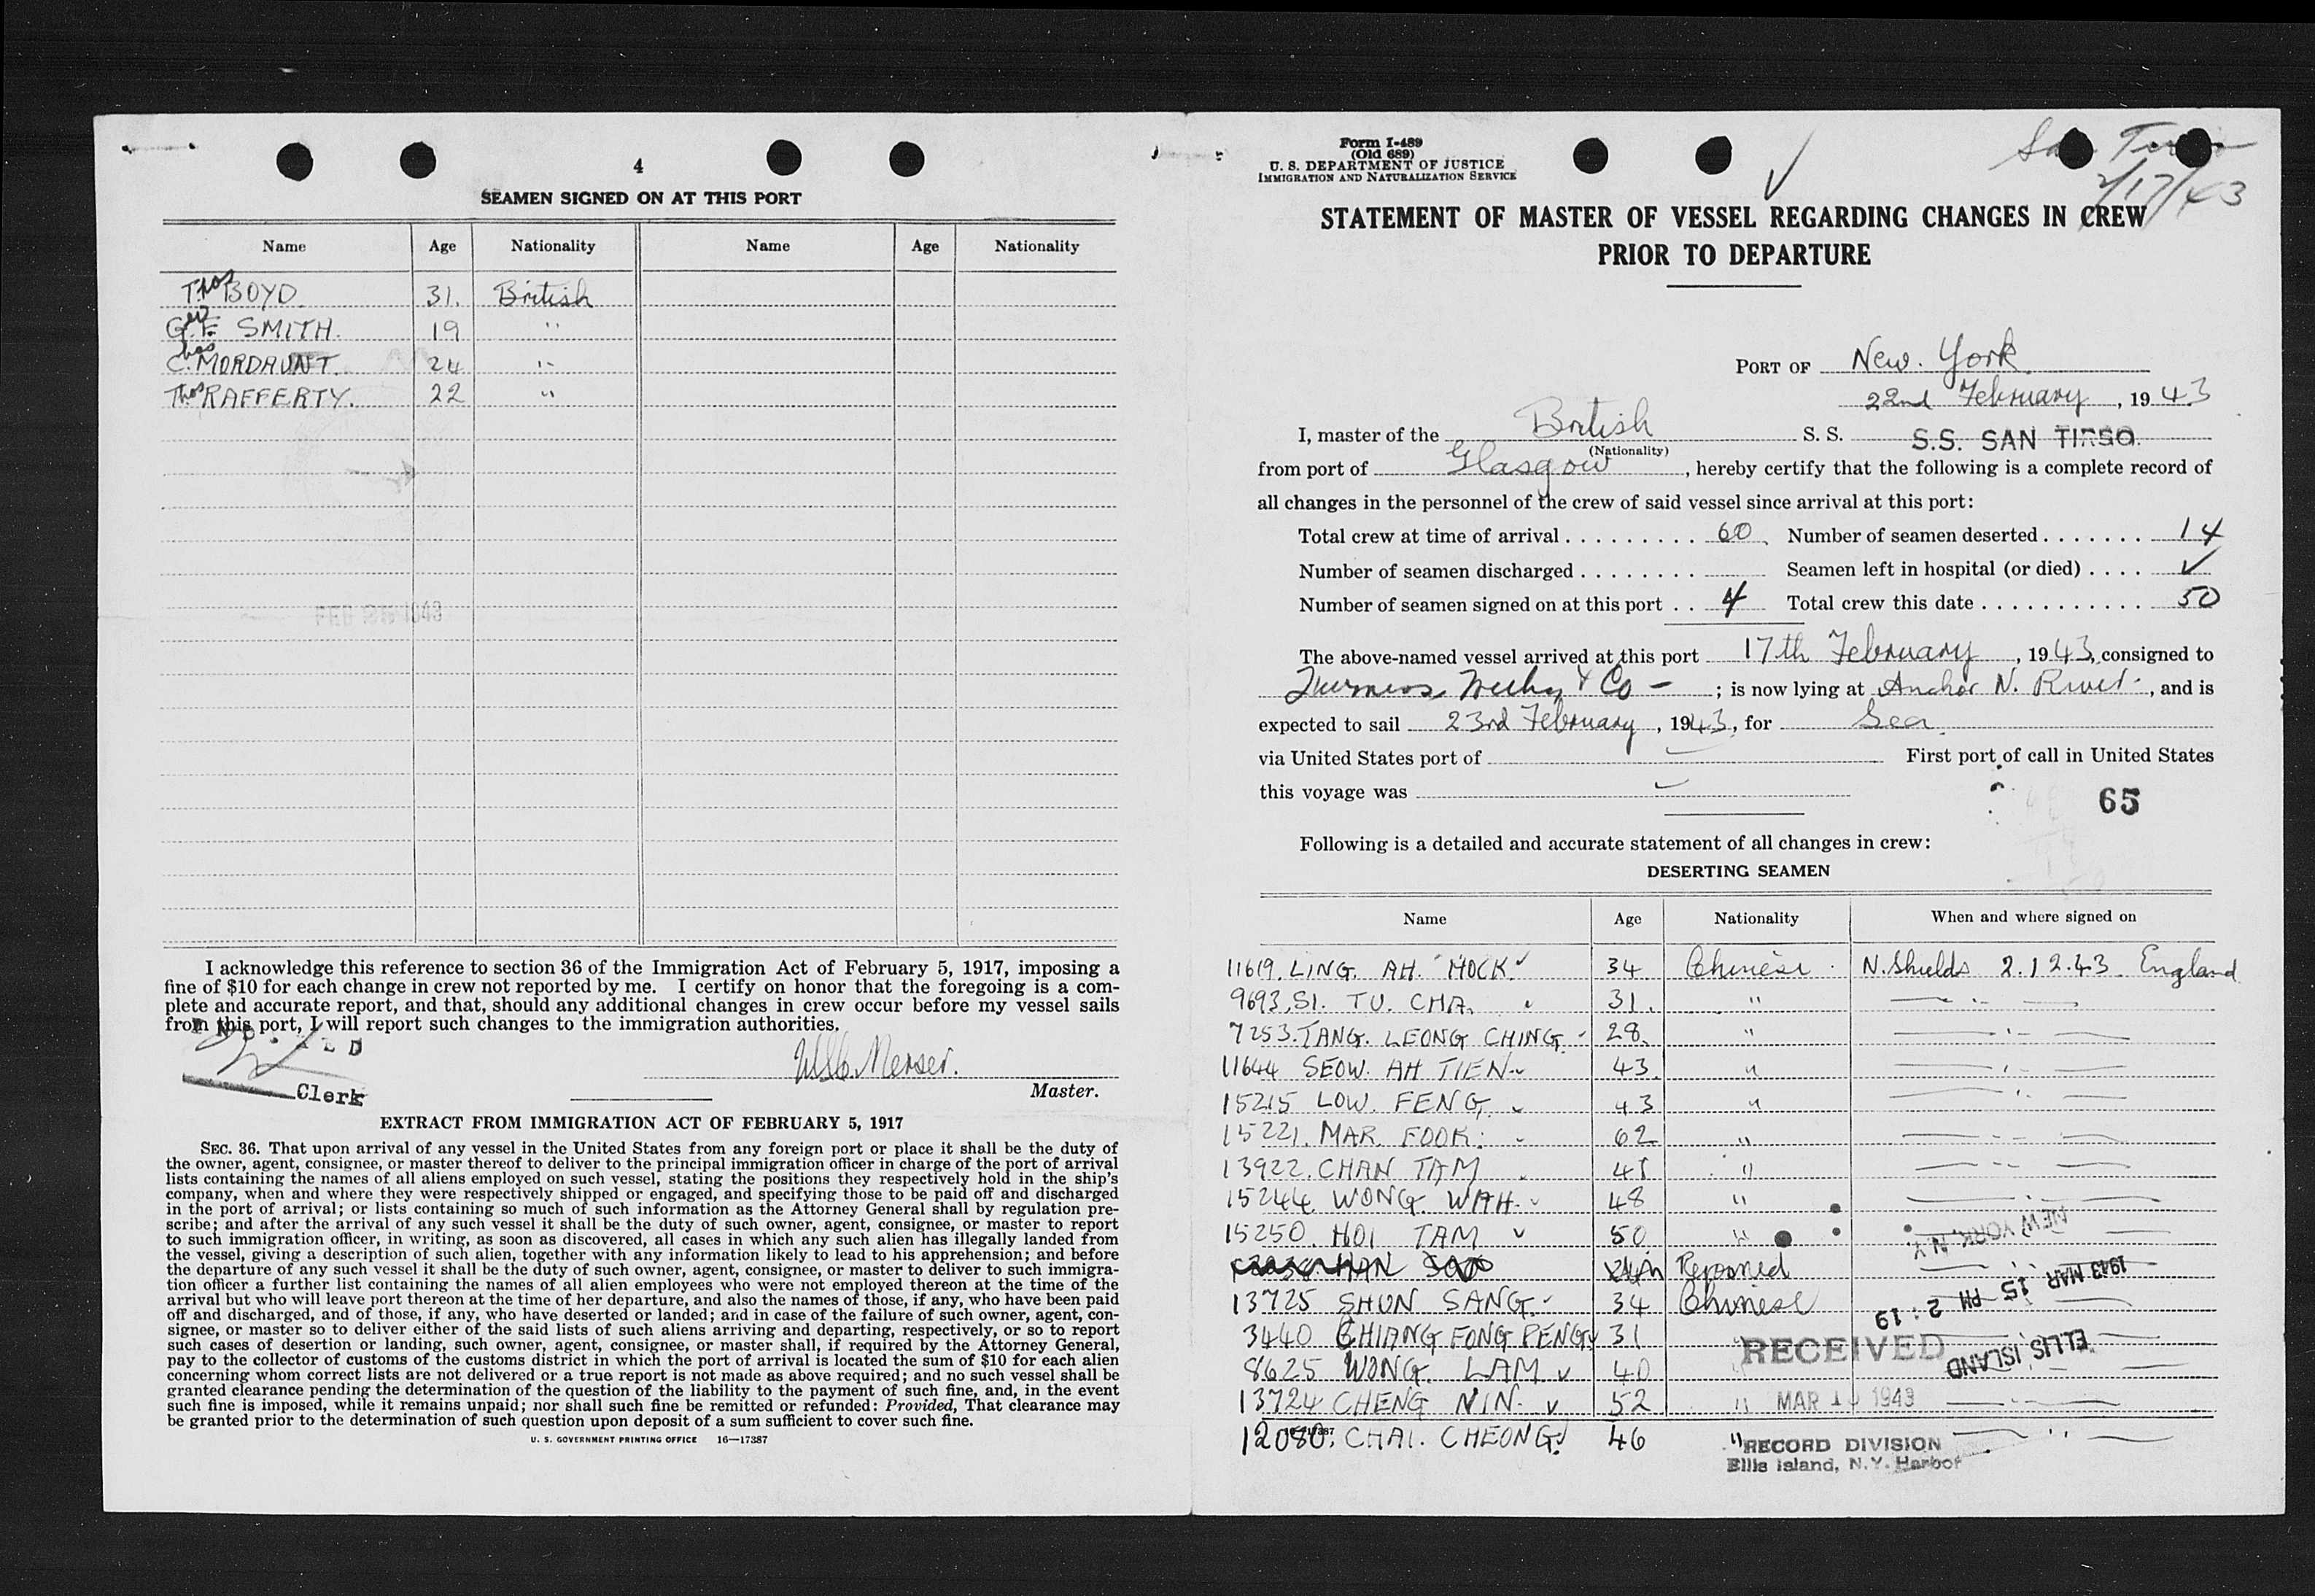 4
SEAMEN SIGNED ON AT THIS PORT
Name Age Nationality Name Age Nationality
Thos BOYD. 31. British
Geo F. SMITH. 19 "
Chas MORDAUNT. 24 "
Thos RAFFERTY. 22 "
FEB 1943
I acknowledge this reference to section 36 of the Immigration Act of February 5, 1917, imposing a
fine of $10 for each change in crew not reported by me. I certify on honor that the foregoing is a com-
plete and accurate report, and that, should any additional changes in crew occur before my vessel sails
from this port, I will report such changes to the immigration authorities.
Clerk
Master.
EXTRACT FROM IMMIGRATION ACT OF FEBRUARY 5, 1917
SEC. 36. That upon arrival of any vessel in the United States from any foreign port or place it shall be the duty of
the owner, agent, consignee, or master thereof to deliver to the principal immigration officer in charge of the port of arrival
lists containing the names of all aliens employed on such vessel, stating the positions they respectively hold in the ship's
company, when and where they were respectively shipped or engaged, and specifying those to be paid off and discharged
in the port of arrival; or lists containing so much of such information as the Attorney General shall by regulation pre-
scribe; and after the arrival of any such vessel it shall be the duty of such owner, agent, consignee, or master to report
to such immigration officer, in writing, as soon as discovered, all cases in which any such alien has illegally landed from
the vessel, giving a description of such alien, together with any information likely to lead to his apprehension; and before
the departure of any such vessel it shall be the duty of such owner, agent, consignee, or master to deliver to such immigra-
tion officer a further list containing the names of all alien employees who were not employed thereon at the time of the
arrival but who will leave port thereon at the time of her departure, and also the names of those, if any, who have been paid
off and discharged, and of those, if any, who have deserted or landed; and in case of the failure of such owner, agent, con-
signee, or master so to deliver either of the said lists of such aliens arriving and departing, respectively, or so to report
such cases of desertion or landing, such owner, agent, consignee, or master shall, if required by the Attorney General,
pay to the collector of customs of the customs district in which the port of arrival is located the sum of $10 for each alien
concerning whom correct lists are not delivered or a true report is not made as above required; and no such vessel shall be
granted clearance pending the determination of the question of the liability to the payment of such fine, and, in the event
such fine is imposed, while it remains unpaid; nor shall such fine be remitted or refunded: Provided, That clearance may
be granted prior to the determination of such question upon deposit of a sum sufficient to cover such fine.
U. S. GOVERNMENT PRINTING OFFICE 16—17387
Form I-489
(Old 689)
U. S. DEPARTMENT OF JUSTICE
IMMIGRATION AND NATURALIZATION SERVICE
San Tirso
2/17/43
STATEMENT OF MASTER OF VESSEL REGARDING CHANGES IN CREW
PRIOR TO DEPARTURE
PORT OF New. York.
22nd February, 1943
I, master of the British S. S. S.S. SAN TIRSO.
(Nationality)
from port of Glasgow, hereby certify that the following is a complete record of
all changes in the personnel of the crew of said vessel since arrival at this port:
Total crew at time of arrival . . . . . . . . . 60. Number of seamen deserted . . . . . . . 14
Number of seamen discharged . . . . . . . . Seamen left in hospital (or died) . . . . ✓
Number of seamen signed on at this port . . 4 Total crew this date . . . . . . . . . . . 50
The above-named vessel arrived at this port 17th February, 1943, consigned to
Furness Withy & Co - ; is now lying at Anchor N. River., and is
expected to sail 23rd February, 1943, for Sea.
via United States port of — First port of call in United States
this voyage was —
65
Following is a detailed and accurate statement of all changes in crew:
DESERTING SEAMEN
Name Age Nationality When and where signed on
11619. LING. AH. HOCK. ✓ 34 Chinese. N. Shields 2.12.43 England
9693. SI. TU. CHA. 31. "
7253. TANG. LEONG CHING. 28. "
11644 SEOW. AH TIEN. 43. "
15215 LOW. FENG. 43 "
15221. MAR. FOOK. 62 "
13922. CHAN TAM 41 "
15244. WONG. WAH. 48 "
15250. HOI TAM ✓ 50 "
HAN Rejoined
13725 SHUN SANG. 34 Chinese
3440 CHIANG FONG PENG ✓ 31 "
8625 WONG. LAM ✓ 40
13724 CHENG NIN. ✓ 52 "
12080. CHAI. CHEONG. ✓ 46 "
NEW YORK, N.Y.
1943 MAR 15 PM 2:19
ELLIS ISLAND
RECEIVED
MAR 1943
RECORD DIVISION
Ellis Island, N.Y. Harbor